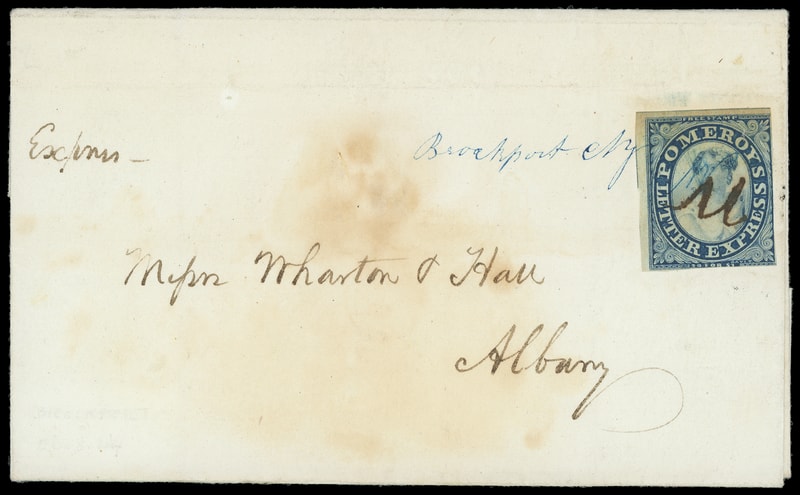 Express
Brockport Ny
FREE STAMP
POMEROY'S
LETTER EXPRESS
Messrs Wharton & Hall
Albany